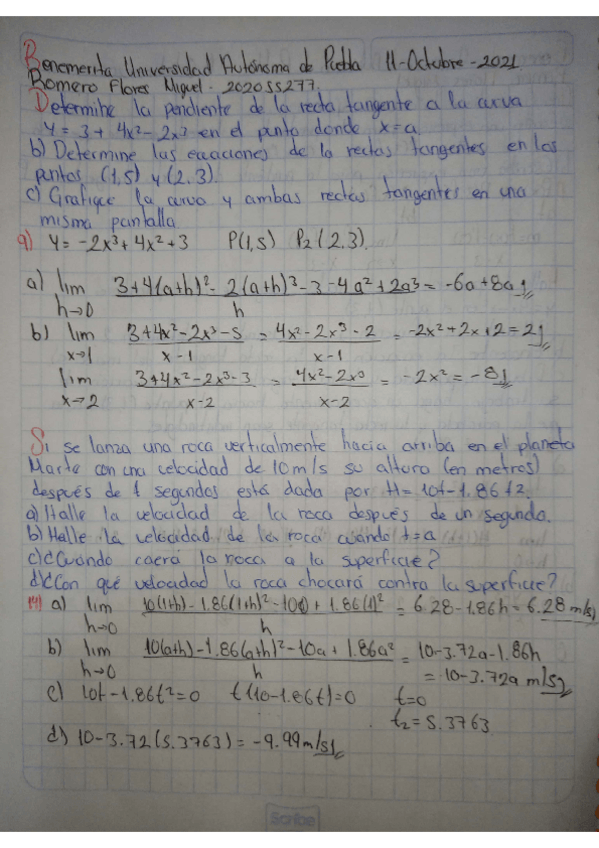 Benemerita Universidad Autónoma de Puebla 11-Octubre-2021
Romero Flores Miguel. 202055277.
Determine la pendiente de la recta tangente a la curva
y = 3 + 4x² - 2x³ en el punto donde x=a
b) Determine las ecuaciones de la rectas tangentes en los
puntos (1,5) y (2,3).
c) Grafique la curva y ambas rectas tangentes en una
misma pantalla
9) y = -2x³ + 4x² + 3 P(1,5) P₂(2,3).
a) lim h→0 3+4(a+h)² - 2(a+h)³ - 3 - 4a² + 2a³ / h = -6a + 8a
b) lim x→1 3+4x²-2x³-5 / x-1 = 4x²-2x³-2 / x-1 = -2x²+2x+2 = 2
lim x→2 3+4x²-2x³-3 / x-2 = 4x²-2x³ / x-2 = -2x² = -8
Si se lanza una roca verticalmente hacia arriba en el planeta
Marte con una velocidad de 10 m/s su altura (en metros)
después de t segundos está dada por H = 10t - 1.86t2.
a) Halle la velocidad de la roca después de un segundo.
b) Halle la velocidad de la roca cuando t=a
c) ¿Cuándo caerá la roca a la superficie?
d) ¿Con qué velocidad la roca chocará contra la superficie?
a) lim h→0 10(1+h) - 1.86(1+h)² - 10(1) + 1.86(1)² / h = 6.28 - 1.86h = 6.28 m/s
b) lim h→0 10(a+h) - 1.86(a+h)² - 10a + 1.86a² / h = 10 - 3.72a - 1.86h
= 10 - 3.72a m/s
c) 10t - 1.86t² = 0 t(10 - 1.86t) = 0 t=0
t₂ = 5.3763
d) 10 - 3.72(5.3763) = -9.99 m/s
Scribe